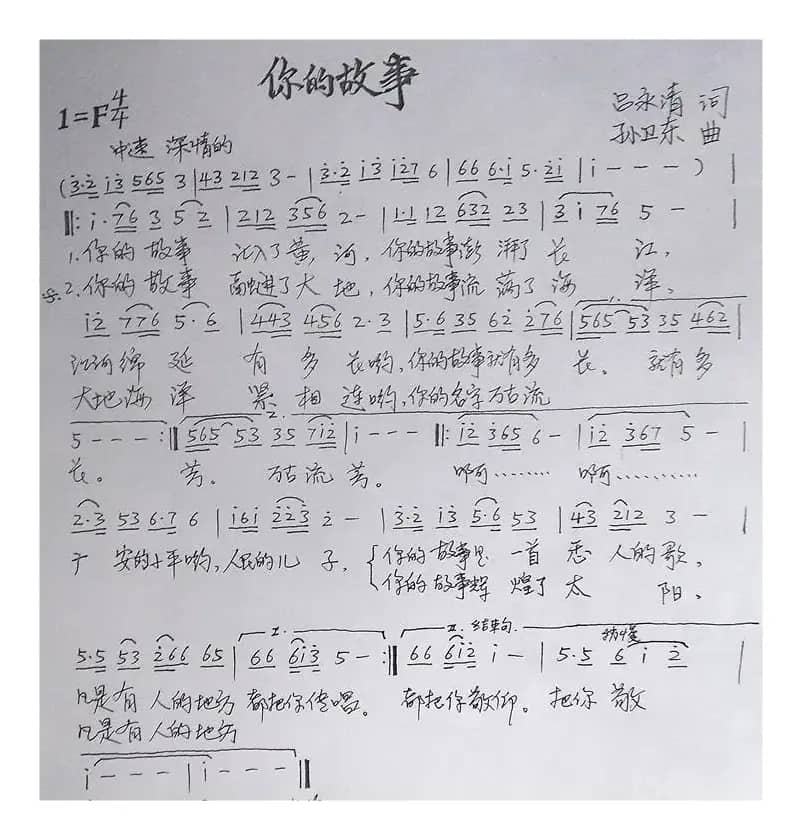 你的故事
1=F 4/4
吕永清 词
孙卫东 曲
中速 深情的
(3·2 i3 565 3 | 43 212 3 - | 3·2 i3 i27 6 | 66 6·i 5·2i | i - - - ) |
‖: i·76 3 5 2 | 212 356 2 - | 1·1 12 632 23 | 3 i 76 5 - |
1.你的故事 汇入了黄河，你的故事澎湃了长江，
2.你的故事 融进了大地，你的故事流荡了海洋。
i2 776 5·6 | 443 456 2·3 | 5·6 35 62 276 | 565 53 35 462 |
江河绵延 有多长哟，你的故事就有多长。就有多
大地海洋 紧相连哟，你的名字万古流
5 - - - :‖ 565 53 35 7i2 | i - - - ‖: i2 365 6 - | i2 367 5 - |
长。 芳。 万古流芳。 啊……… 啊…………
2·3 53 6·7 6 | i6i 223 2 - | 3·2 i3 5·6 53 | 43 212 3 - |
广安的小平哟，人民的儿子，{你的故事是一首悉人的歌。
你的故事辉煌了太阳。
5·5 53 266 65 | I. 66 6i3 5 - :‖ II. 结束句. 66 6i2 i - | 5·5 6 i 2 |
凡是有人的地方都把你传唱。 都把你敬仰。把你敬
凡是有人的地方
i - - - | i - - - ‖